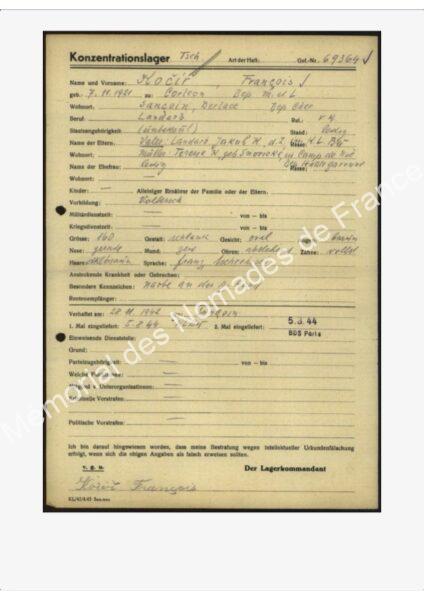 Konzentrationslager Tsch Art der Haft: Gef.-Nr.: 69364
Name und Vorname: Kočir, François
geb.: 7.11.1921 zu: Corlcon Dep. M.u.L
Wohnort: Sancoin, Dep Cher
Beruf: Landarb Rel.: r k
Staatsangehörigkeit: Stand: ledig
Name der Eltern: Vater: Landarb Jakob K. Rasse:
Wohnort: Mutter: Terese K. geb.
Name der Ehefrau: ledig Rasse:
Wohnort: —
Kinder: — Alleiniger Ernährer der Familie oder der Eltern:
Vorbildung: Volkssch
Militärdienstzeit: — von — bis
Kriegsdienstzeit: — von — bis
Grösse: 160 Gestalt: schlank Gesicht: oval Augen: braun
Nase: gerade Mund: Ohren: abstehend Zähne:
Haare: Sprache: franz
Ansteckende Krankheit oder Gebrechen:
Besondere Kennzeichen: Narbe an der
Rentenempfänger:
Verhaftet am: 28.11.1942 wo: Sancoin
1. Mal eingeliefert: 5.8.44 2. Mal eingeliefert: 5.8.44
BDS Paris
Einweisende Dienststelle:
Grund:
Parteizugehörigkeit: — von — bis
Welche Funktionen: —
Mitglied v. Unterorganisationen: —
Kriminelle Vorstrafen: —
Politische Vorstrafen: —
Ich bin darauf hingewiesen worden, dass meine Bestrafung wegen intellektueller Urkundenfälschung
erfolgt, wenn sich die obigen Angaben als falsch erweisen sollten.
v. g. u. Der Lagerkommandant
Kočir François
Memorial des Nomades de France